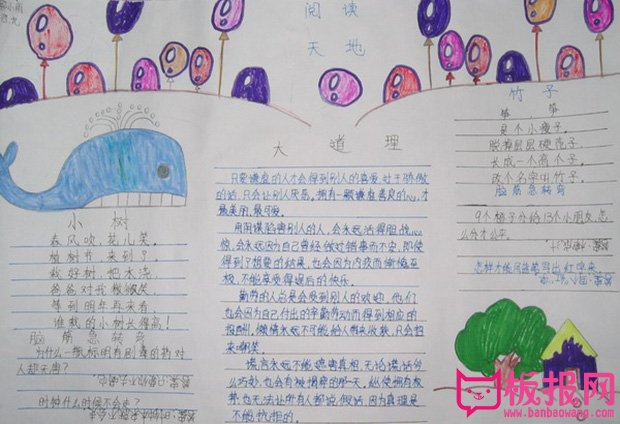 阅读
天地
小树
春风吹,花儿笑。
植树节,来到了。
我好树,把水浇,
爸爸对我微微笑。
等到明年再来看,
谁栽的小树长得高!
脑筋急转弯
对人却无害?
时钟什么时候不会走?
大道理
只要谦虚的人才会得到别人的喜爱,对于骄傲
的话,只会让别人厌恶。拥有一颗谦虚善良的心,才
最美丽,最可爱。
用阴谋陷害别人的人,会永远活得胆战心
惊,会永远因为自己曾经做过错事而不安,即使
得到了想要的结果,也会因为内疚而
极,不能享受得逞后的快乐。
勤劳的人总是会受到别人的欢迎,他们
也会因为自己付出的辛勤劳动而得到相应的
报酬,懒惰永远不可能给人带来收获,只会招
来嘲笑。
谎言永远不能遮害真相,无论谎话分
么巧妙,也会有被揭穿的那一天,纵使拥有权
势,也无法让所有人都说假话,因为真理是
不能抗拒的。
竹子
笋,笋,
是个小瘦子。
脱掉层层硬壳子,
长成一个高个子。
改个名字叫竹子。
脑筋急转弯
9个橙子分给13个小朋友,怎
么分才公平。
怎样才能用蓝笔写出红字来。
板报网
www.banbaowang.com